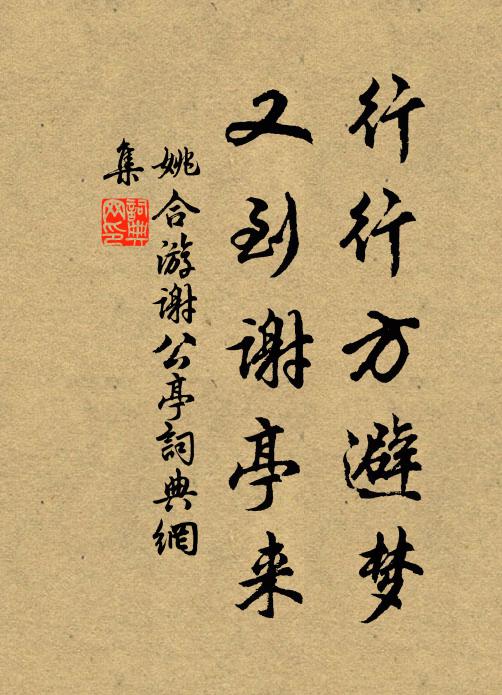 行行方避梦
又到谢亭来
姚合游谢公亭詞典網
集
詞典網印